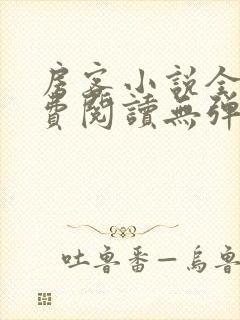 房客小说全
費閱讀無彈
吐魯番—烏魯